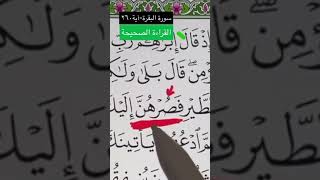 سورة البقرة-اية٢٦٠
القراءة الصحيحة
إِذْ قَالَ إِبْرَٰهِـۧمُ رَبِّ
ؤْمِن ۖ قَالَ بَلَىٰ وَلَـٰكِ
لطَّيْرِ فَصُرْهُنَّ إِلَيْكَ
ٱدْعُهُنَّ يَأْتِينَكَ